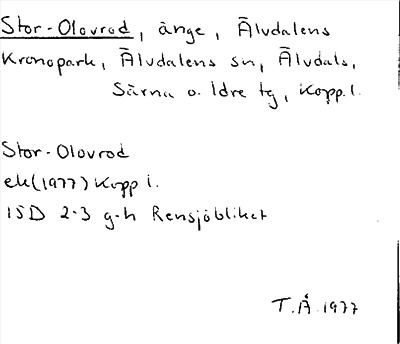 Stor-Olovrod, änge, Älvdalens
Kronopark, Älvdalens sn, Älvdals,
Särna o. Idre tg, Kopp.l.
Stor-Olovrod
ek(1977) Kopp l.
15D 2-3 g-h Rensjöbliket
T.Å.1977